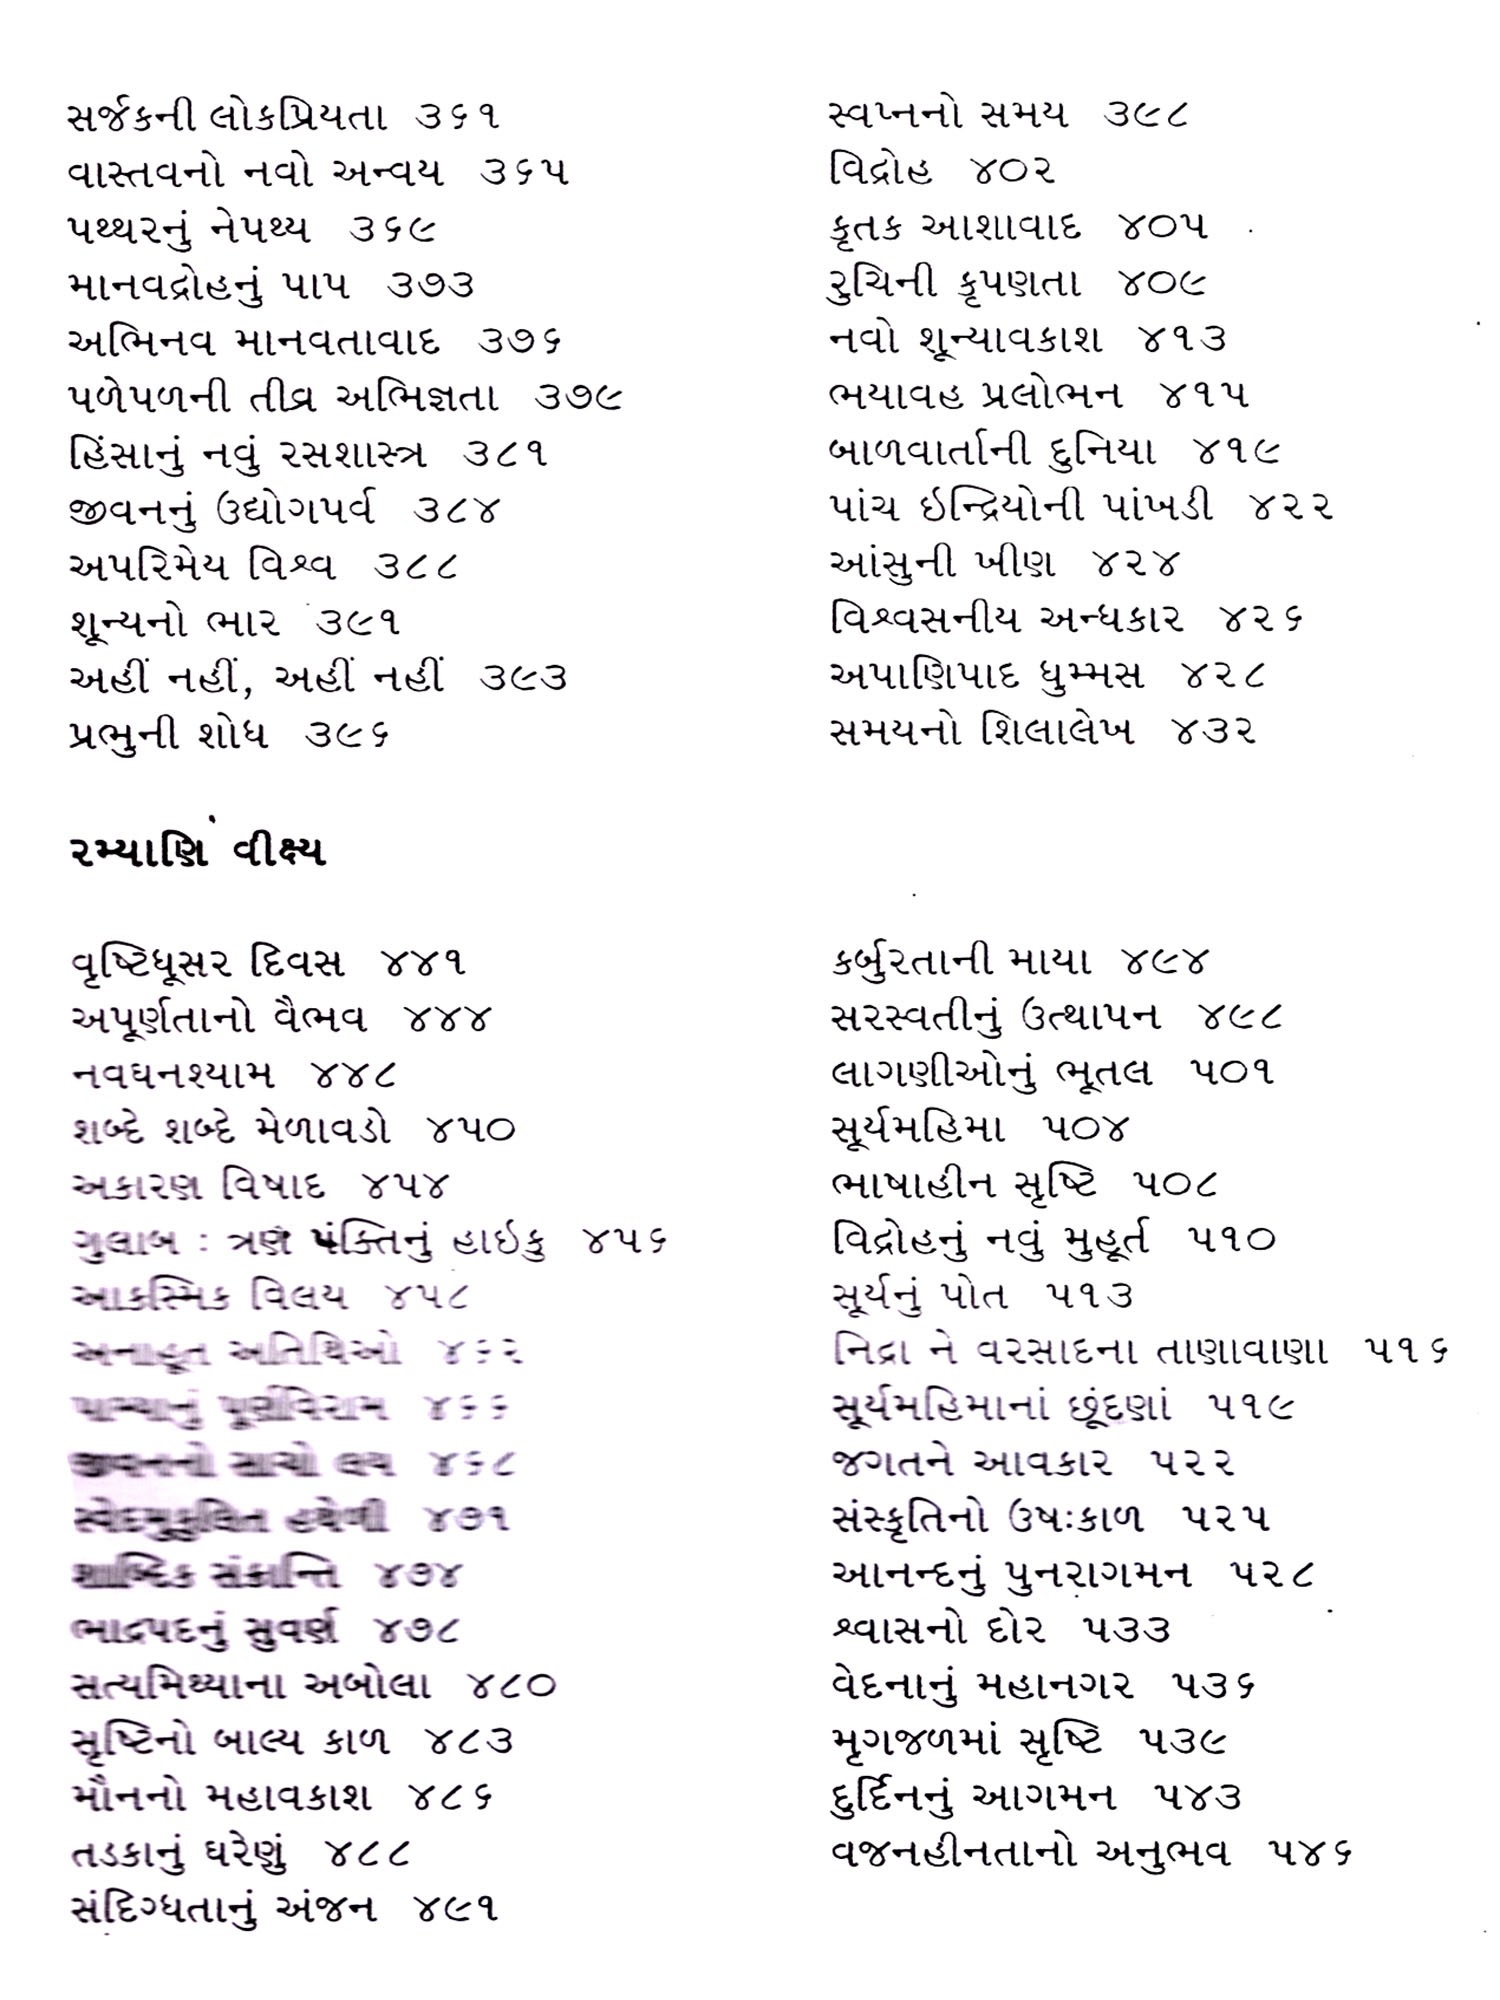 સર્જકની લોકપ્રિયતા ૩૬૧
વાસ્તવનો નવો અન્વય ૩૬૫
પથ્થરનું નેપથ્ય ૩૬૯
માનવદ્રોહનું પાપ ૩૭૩
અભિનવ માનવતાવાદ ૩૭૬
પળેપળની તીવ્ર અભિજ્ઞતા ૩૭૯
હિંસાનું નવું રસશાસ્ત્ર ૩૮૧
જીવનનું ઉદ્યોગપર્વ ૩૮૪
અપરિમેય વિશ્વ ૩૮૮
શૂન્યનો ભાર ૩૯૧
અહીં નહીં, અહીં નહીં ૩૯૩
પ્રભુની શોધ ૩૯૬
સ્વપ્નનો સમય ૩૯૮
વિદ્રોહ ૪૦૨
કૃતક આશાવાદ ૪૦૫
રુચિની કૃપણતા ૪૦૯
નવો શૂન્યાવકાશ ૪૧૩
ભયાવહ પ્રલોભન ૪૧૫
બાળવાર્તાની દુનિયા ૪૧૯
પાંચ ઇન્દ્રિયોની પાંખડી ૪૨૨
આંસુની ખીણ ૪૨૪
વિશ્વસનીય અન્ધકાર ૪૨૬
અપાણિપાદ ધુમ્મસ ૪૨૮
સમયનો શિલાલેખ ૪૩૨
રમ્યાણિ વીક્ષ્ય
વૃષ્ટિધૂસર દિવસ ૪૪૧
અપૂર્ણતાનો વૈભવ ૪૪૪
નવઘનશ્યામ ૪૪૮
શબ્દે શબ્દે મેળાવડો ૪૫૦
અકારણ વિષાદ ૪૫૪
ગુલાબ : ત્રણ પંક્તિનું હાઇકુ ૪૫૬
આકસ્મિક વિલય ૪૫૮
અનાહૂત અતિથિઓ ૪૬૨
પામ્યાનું પૂર્ણવિરામ ૪૬૬
જીવનનો સાચો લય ૪૬૮
સ્વેદમુકુલિત હથેળી ૪૭૧
શાબ્દિક સંક્રાન્તિ ૪૭૪
ભાદ્રપદનું સુવર્ણ ૪૭૮
સત્યમિથ્યાના અબોલા ૪૮૦
સૃષ્ટિનો બાલ્ય કાળ ૪૮૩
મૌનનો મહાવકાશ ૪૮૬
તડકાનું ઘરેણું ૪૮૮
સંદિગ્ધતાનું અંજન ૪૯૧
કર્બુરતાની માયા ૪૯૪
સરસ્વતીનું ઉત્થાપન ૪૯૮
લાગણીઓનું ભૂતલ ૫૦૧
સૂર્યમહિમા ૫૦૪
ભાષાહીન સૃષ્ટિ ૫૦૮
વિદ્રોહનું નવું મુહૂર્ત ૫૧૦
સૂર્યનું પોત ૫૧૩
નિદ્રા ને વરસાદના તાણાવાણા ૫૧૬
સૂર્યમહિમાનાં છૂંદણાં ૫૧૯
જગતને આવકાર ૫૨૨
સંસ્કૃતિનો ઉષઃકાળ ૫૨૫
આનન્દનું પુનરાગમન ૫૨૮
શ્વાસનો દોર ૫૩૩
વેદનાનું મહાનગર ૫૩૬
મૃગજળમાં સૃષ્ટિ ૫૩૯
દુર્દિનનું આગમન ૫૪૩
વજનહીનતાનો અનુભવ ૫૪૬